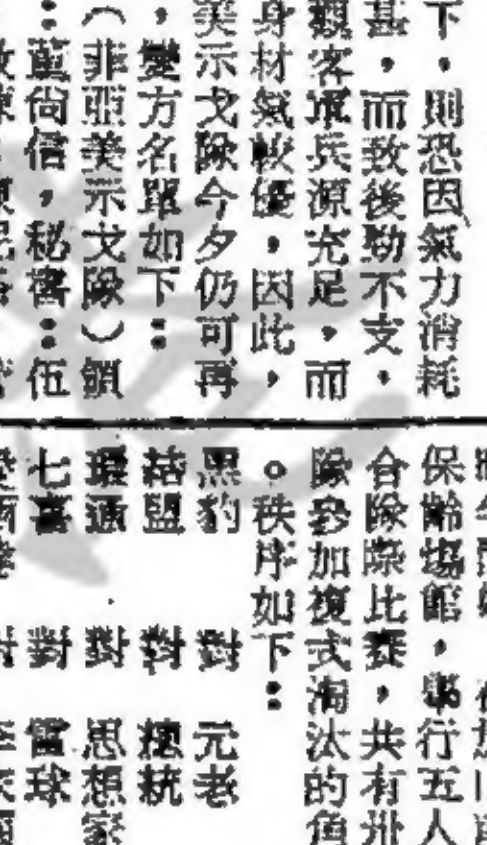 下，則恐因氣力消耗
甚，而致後勁不支，
觀客軍兵源充足，而
身材氣較優，因此，
美示戈隊今夕仍可再
，雙方名單如下：
（非亞美示戈隊）領
：董尚信，秘書：伍
保齡場館，舉行五人
合隊際比賽，共有卅
隊參加複式淘汰的角
。秩序如下：
黑豹 對 元老
結盟 對 總統
環通 對 思想家
七喜 對 雪球